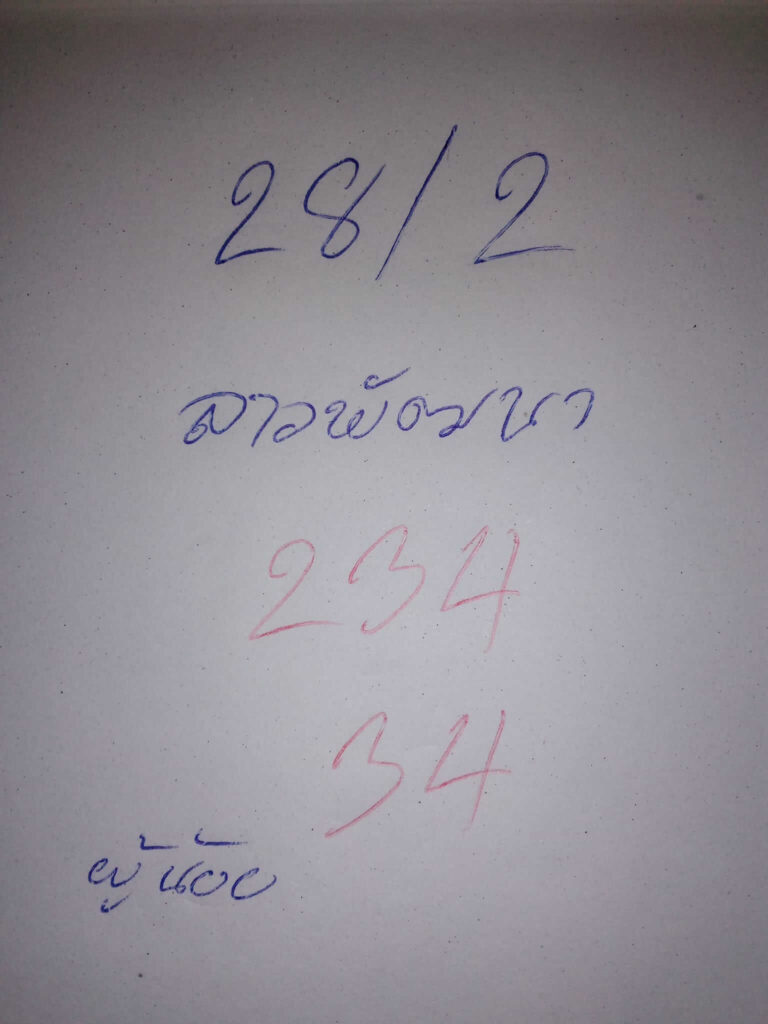 28/2
ลาวพัฒนา
234
34
ผู้น้อย